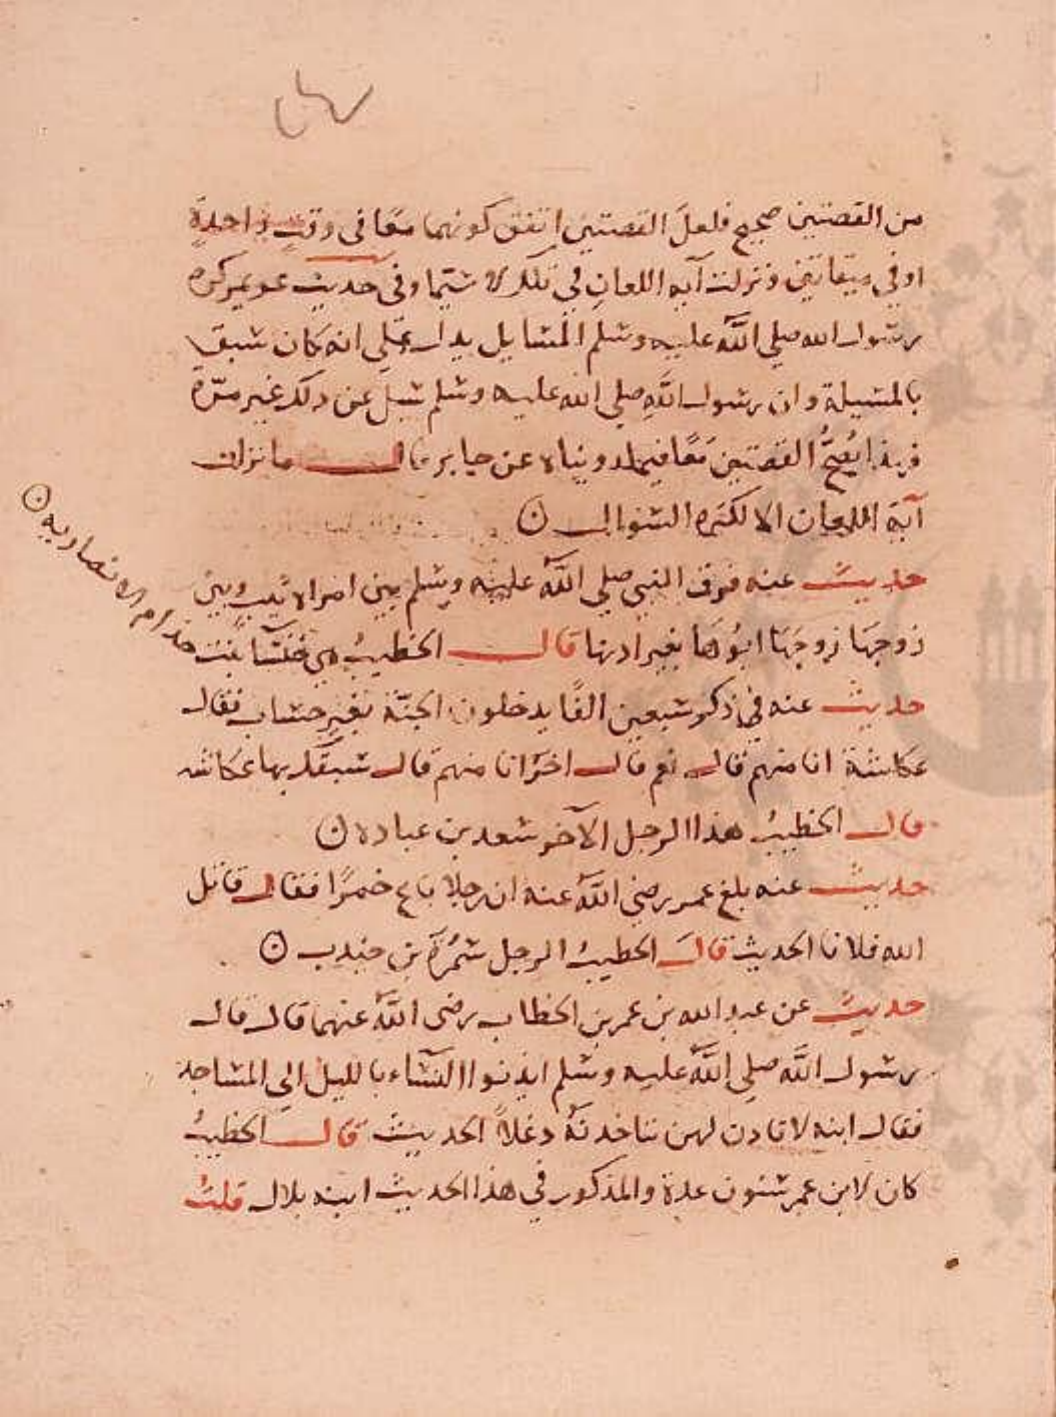 من القصتين صحيح فلعل القصتين اتفق كونهما معًا في وقت واحدة
او في ميقاتين ونزلت آية اللعان في تلك لا سيما وفي حديث عويمر كره
رسول الله صلى الله عليه وسلم المسايل يدل على انه كان سبق
بالمسيلة وان رسول الله صلى الله عليه وسلم سيل عن ذلك غير مرّة
معًا عن جابر قال ما نزلت
آية اللعان الا لكثرة السؤال ن
حديث عنه فرق النبي صلى الله عليه وسلم بين امراة ثيب وبين
زوجها زوجها ابوها بغير اذنها قال الخطيبُ هي خنسا بنت
خذام الانصاريه ن
حديث عنه في ذكر سبعين الفًا يدخلون الجنّة بغير حساب فقال
عكاشة انا منهم قال نعم قال اخر انا منهم قال سبقك بها عكاشه
قال الخطيبُ هذا الرجل الآخر سعد بن عباده ن
حديث عنه بلغ عمر رضي الله عنه ان رجلا باع خمرًا فقال قاتل
الله فلانا الحديث قال الخطيبُ الرجل سَمُرَة بن جندب ن
حديث عن عبد الله بن عمر بن الخطاب رضى الله عنهما قال قال
رسول الله صلى الله عليه وسلم ايذنوا للنساء بالليل الى المساجد
فقال ابنه لا ناذن لهن يتاخذنهُ دغلاً الحديث قال الخطيبُ
كان لابن عمر بنون عدة والمذكور في هذا الحديث ابنه بلال قلت